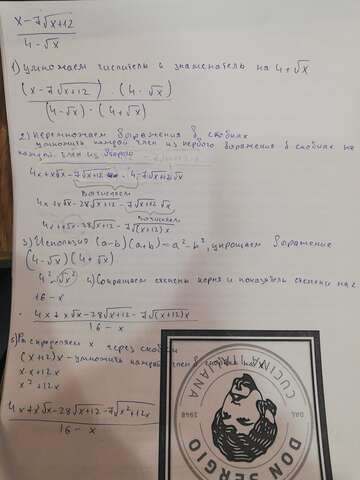 x-7√x+12
4-√x
1) умножаем числитель и знаменатель на 4+√x
(x-7√x+12) · (4 · √x)
(4-√x) · (4+√x)
2) Перемножаем выражения в скобках
умножить каждый член из первого выражения в скобках на
каждый член из второго
4x+x√x-7√x+12 · 4-7√x+12√x
Вычисляем
4x+x√x-28√x+12-7√x+12√x
Вычисляем
4x+x√x-28√x+12-7√(x+12)x
3) Используя (a-b)(a+b)=a²-b², упрощаем выражение
(4-√x)(4+√x)
4²-√x² 4) Сокращаем степень корня и показатель степени на 2
16-x
4x+x√x-28√x+12-7√(x+12)x
16-x
5) Распределяем x через скобки
(x+12)x - умножить каждый член в скобках на x
x·x+12x
x²+12x
4x+x√x-28√x+12-7√x²+12x
16-x
CUCINA ITALIANA
DAL
1948
DON SERGIO